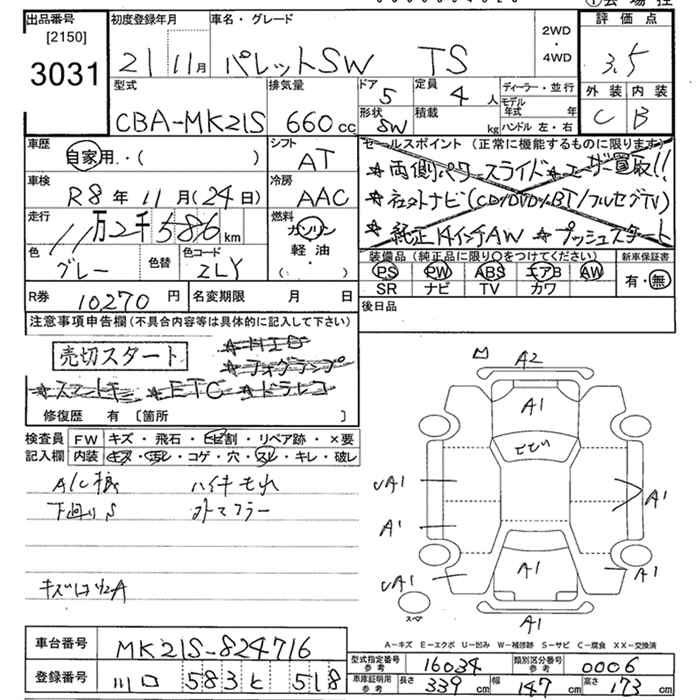 出品番号
[2150]
3031
初度登録年月
21 11月
車名・グレード
パレットSW TS
2WD
・
4WD
評価点
3.5
型式
CBA-MK21S
排気量
660cc
ドア
5
形状
SW
定員
4人
積載
kg
ディーラー・並行
モデル年式 年
ハンドル 左・右
外装 内装
C B
車歴
自家用・( )
シフト
AT
セールスポイント (正常に機能するものに限ります)
★両側パワースライド★ユーザー買取!!
★社外ナビ(CD/DVD/BT/フルセグTV)
★純正14インチAW ★プッシュスタート
車検
R8年11月(24日)
冷房
AAC
走行
11万2千586km
燃料
ガソリン
軽油
( ・ )
色
グレー
色替
色コード
ZLY
装備品 (純正品に限り○をつけてください)
PS PW ABS エアB AW
SR ナビ TV カワ
新車保証書
有・無
R券 10270円
名変期限 月 日
後日品
注意事項申告欄 (不具合内容等は具体的に記入して下さい)
売切スタート
★HID
★フォグランプ
★スマートキー ★ETC ★ドラレコ
修復歴 有 [箇所 ]
検査員記入欄
FW キズ・飛石・ヒビ割・リペア跡・×要
内装 キズ・汚レ・コゲ・穴・スレ・キレ・破レ
下廻りS
A2
A1
UA1
A1
A1
A1
UA1
A1
A1
A1
スペア
A−キズ E−エクボ U−凹み W−補修跡 S−サビ C−腐食 XX−交換済
車台番号 MK21S-824716
登録番号 川口 583 と 518
型式指定番号 参考 16034
類別区分番号 参考 0006
車庫証明用 参考 長さ 339cm 幅 147cm 高さ 173cm